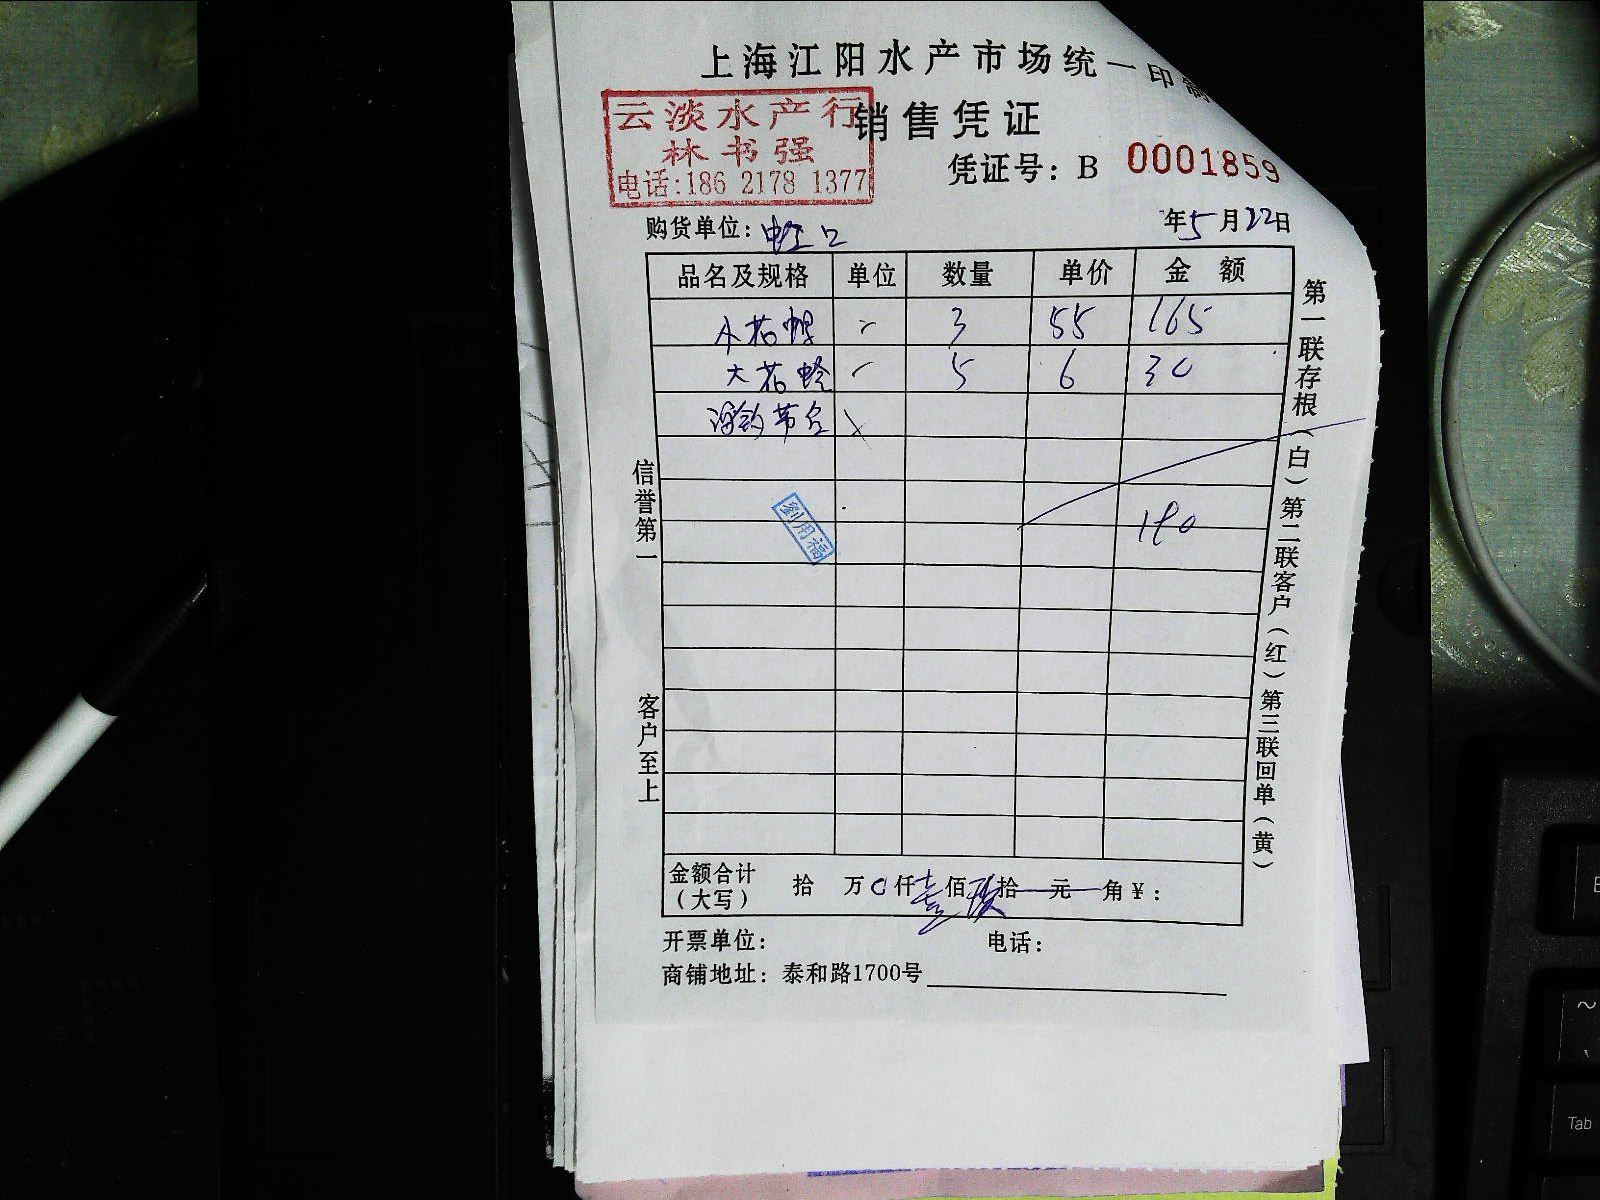 上海江阳水产市场统一印制
云淡水产行
林书强
电话:186 2178 1377
销售凭证
凭证号: B 0001859
购货单位: 虹口
年5月22日
品名及规格 单位 数量 单价 金额
小花 3 55 165
大花 5 6 30
190
劉用福
信誉第一
客户至上
第一联存根(白)第二联客户(红)第三联回单(黄)
金额合计(大写) 拾 万 0仟壹佰玖拾 元 角¥:
开票单位: 电话:
商铺地址: 泰和路1700号
Tab